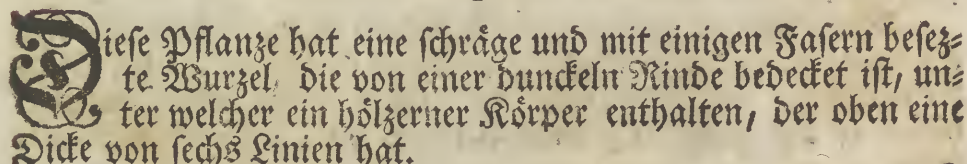 Dieſe Pflanze hat eine ſchräge und mit einigen Faſern beſez⸗
te Wurzel, die von einer dunckeln Rinde bedecket iſt, un⸗
ter welcher ein hölzerner Körper enthalten, der oben eine
Dicke von ſechs Linien hat.